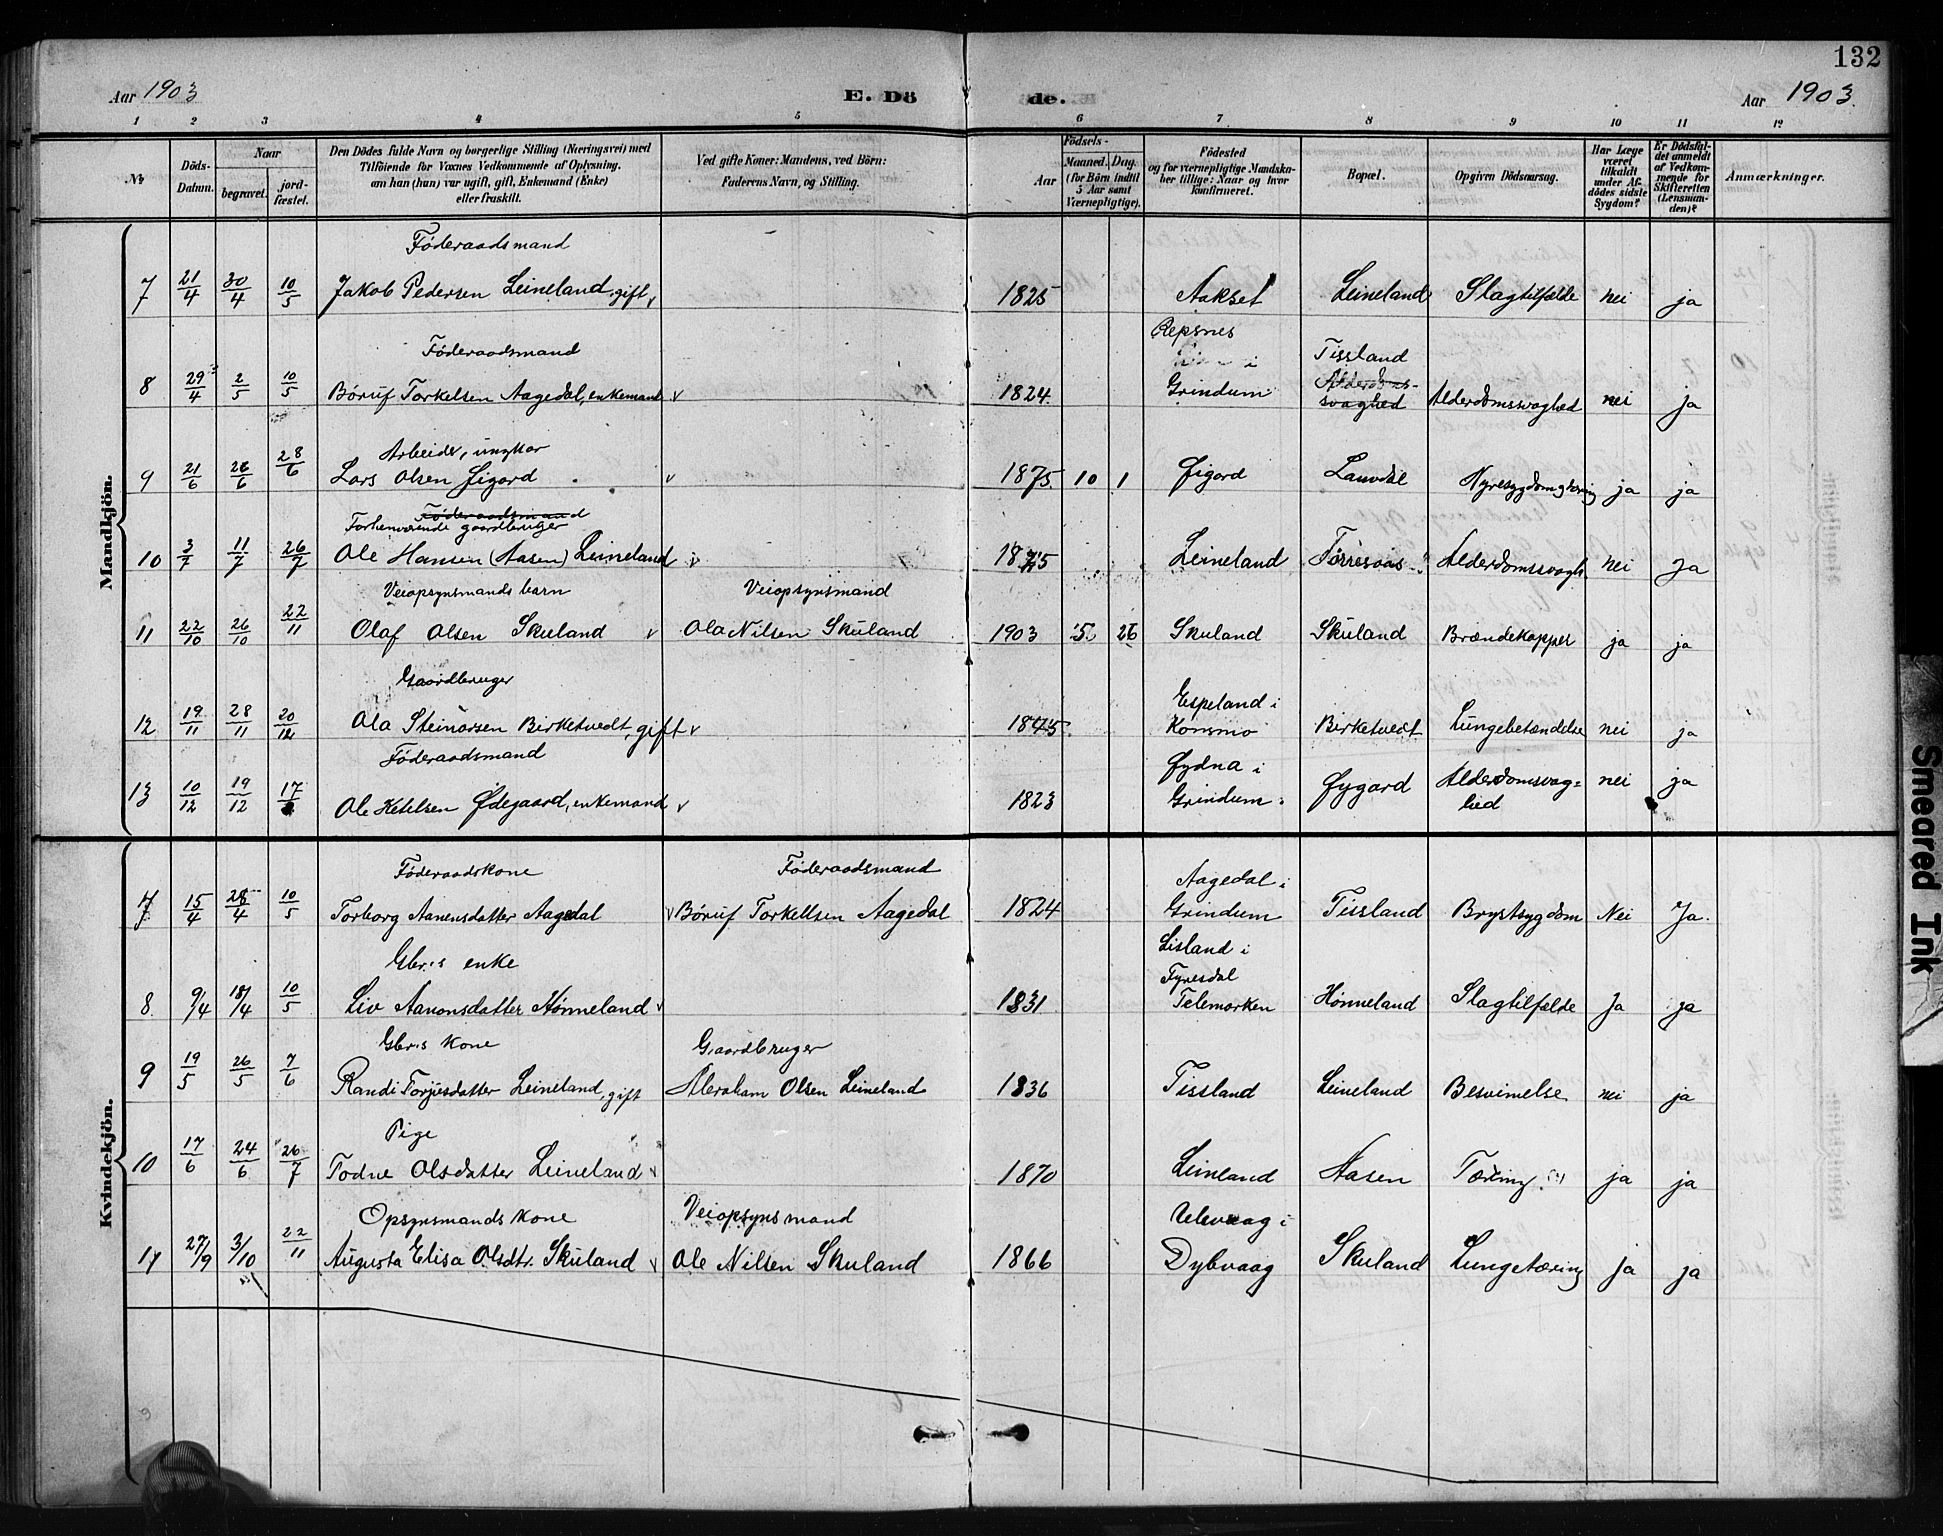 132
Aar 1903
E. Döde.
Aar 1903.
1 2 3 4 5 6 7 8 9 10 11 12
№
Döds-Datum.
Naar
begravet.
jord-fæstet.
Den Dödes fulde Navn og borgerlige Stilling (Næringsvei) med
Tilföiende for Voxnes Vedkommende af Oplysning.
om han (hun) var ugift, gift, Enkemand (Enke)
eller fraskilt.
Ved gifte Koner: Mandens, ved Börn:
Faderens Navn, og Stilling.
Födsels-
Aar
Maaned. Dag.
(for Börn indtil
5 Aar samt
Værnepligtige).
Födested
og for værnepligtige Mandska-
ber tillige: Naar og hvor
konfirmeret.
Bopæl.
Opgiven Dödsaarsag.
Har Læge
været
tilkaldt
under Af-
dödes sidste
Sygdom?
Er Dödsfal-
det anmeldt
af Vedkom-
mende for
Skifteretten
(Lensman-
den)?
Anmærkninger.
Mandkjön.
Föderaadsmand
7 21/4 30/4 10/5 Jakob Pedersen Leineland, gift 1825 Aakset Leineland Slagtilfælde nei ja
Föderaadsmand Repsnes i Tissland
8 29/4 2/5 10/5 Böruf Torkelsen Aagedal, enkemand 1824 Grindum Alderdoms-svaghed Alderdomssvaghed nei ja
Arbeider, ungkar
9 21/6 26/6 28/6 Lars Olsen Øigard 1875 10 1 Øigord Lauvdal ja ja
Föderaadsmand
Forhenværende gaardbruger
10 3/7 11/7 26/7 Ole Hansen (Aasen) Leineland Leineland Alderdomssvagh. nei Ja
Veiopsynsmands barn Veiopsynsmand
11 22/10 26/10 22/11 Olaf Olsen Skuland Ola Nilsen Skuland 1903 5 26 Skuland Skuland Brændekopper ja ja
Gaardbruger Espeland i
12 19/11 28/11 20/12 Ola Steinarsen Birketvedt, gift 1845 Konsmo Birketvedt Lungebetændelse nei ja
Föderaadsmand Øydna i
13 10/12 19/12 17 Ole Ketelsen Ødegaard, enkemand 1823 Grindum Øygard Alderdomsvag=hed nei ja
Kvindekjön.
Föderaadskone Föderaadsmand Aagedal i
7 15/4 28/4 10/5 Torborg Aanensdatter Aagedal Böruf Torkellsen Aagedal 1824 Grindum Tissland Brystsygdom Nei Ja.
Gbr.s enke Lisland i Fyresdal
8. 9/4 18/4 10/5 Liv Aanonsdatter Hönneland 1831 Telemarken Hönneland Slagtilfælde Ja ja
Gbr.s Kone Gaardbruger
9 19/5 26/5 7/6 Randi Torjusdatter Leineland, gift Abraham Olsen Leineland 1836 Tissland Leineland Besvimelse nei ja
Pige
10 17/6 24/6 26/7 Todne Olsdatter Leineland 1870 Leinland Aasen Tæring ja ja
Opsynsmands Kone Veiopsynsmand
11 27/9 3/10 22/11 Augusta Elisa Olsdtr. Skuland Ole Nilsen Skuland 1866 Dybvaag Skuland Lungetæring Ja ja
Smeared Ink